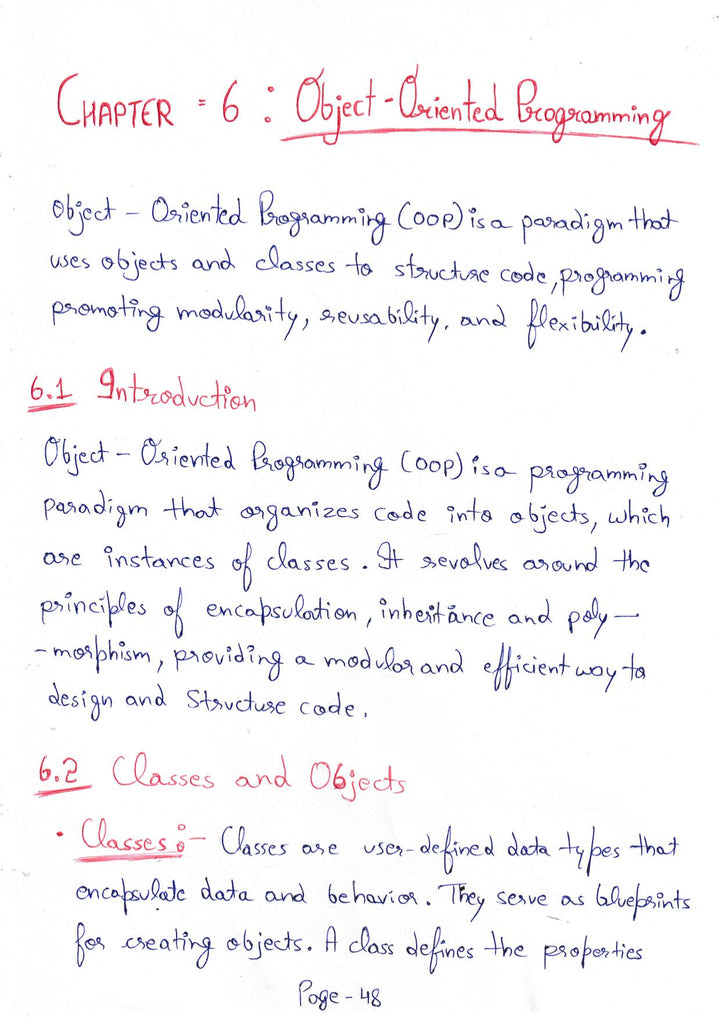 CHAPTER = 6 : Object-Oriented Programming
Object - Oriented Programming (OOP) is a paradigm that
uses objects and classes to structure code, programming
promoting modularity, reusability, and flexibility.
6.1 Introduction
Object - Oriented Programming (OOP) is a programming
paradigm that organizes code into objects, which
are instances of classes. It revolves around the
principles of encapsulation, inheritance and poly-
-morphism, providing a modular and efficient way to
design and Structure code.
6.2 Classes and Objects
• Classes :- Classes are user-defined data types that
encapsulate data and behavior. They serve as blueprints
for creating objects. A class defines the properties
Page - 48